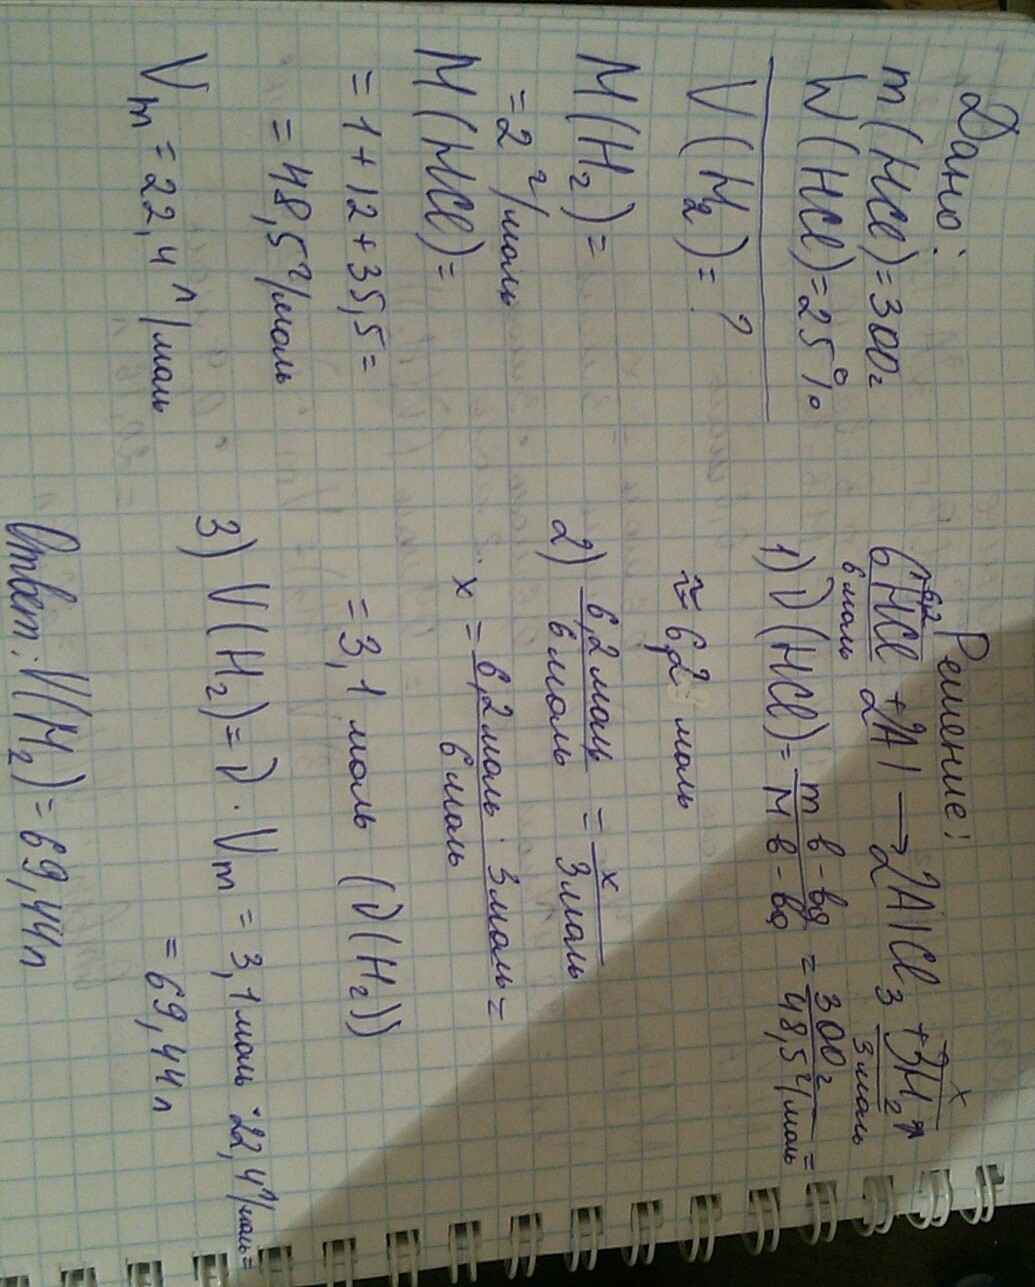 Дано:
m(HCl)=300г
W(HCl)=25%
V(H₂)=?
M(H₂)=
=2 г/моль
M(HCl)=
=1+12+35,5=
=48,5 г/моль
Vm=22,4 л/моль
Решение:
6,2 x
6HCl+2Al→2AlCl₃+3H₂↑
6моль 2 3моль
1) ν(HCl)=m в-ва/M в-ва=300г/48,5 г/моль=
≈6,2 моль
2) 6,2моль/6моль=x/3моль
x=6,2моль·3моль/6моль=
=3,1 моль (ν(H₂))
3) V(H₂)=ν·Vm=3,1моль·22,4 л/моль=
=69,44л
Ответ: V(H₂)=69,44л